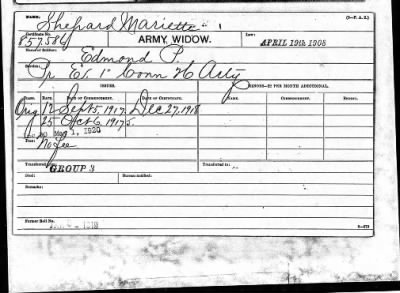 NAME: (3-F. A. Z.)
Shepard Mariette
Certificate No. Law:
857,584 ARMY WIDOW. APRIL 19th 1908
Name of Soldier:
Edmond P.
Service:
Pr E, 1" Conn H Arty
ISSUES. MINORS—$2 PER MONTH ADDITIONAL.
CLASS. RATE. COMMENCEMENT. DATE OF CERTIFICATE. NAME. COMMENCEMENT. EXPIRES.
Orig 12 Sept 5, 1917. Dec 27, 1918
25 Oct 6, 1917
May 1, 1920
No Fee
Transferred GROUP 3 Transferred to
Died: Bureau notified:
Remarks:
Former Roll No.